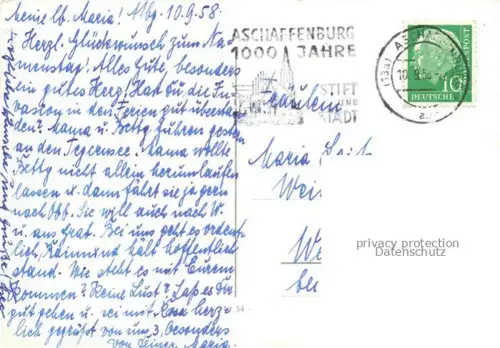 Meine lb. Maria! Abg. 10.9.58.
Herzl. Glückwunsch zum Na-
menstag! Alles Gute, besonders
ein gutes Herz! Hast du die In-
vasion in den Ferien gut überstan-
den? Mama u. Betty führen gestern
an den Tegernsee. Mama wollte
Betty nicht allein herumlaufen
lassen u. dann fährt sie ja gern
nach Obb. Sie will auch nach W.
u. aus Grat. Bei uns geht es ordent-
lich, Raimund hält hoffentlich
stand. Wie steht es mit Eurem
Kommen? Keine Lust? Laß es Dir
gut gehen u. sei mit Rosa herz-
lich gegrüßt von uns 3, besonders
von Deiner Maria.
ASCHAFFENBURG
1000 JAHRE
STIFT
UND
STADT
10.9.58
10
DEUTSCHE
BUNDESPOST
Fräulein
Maria
Wei
We
bei
privacy protection
Datenschutz